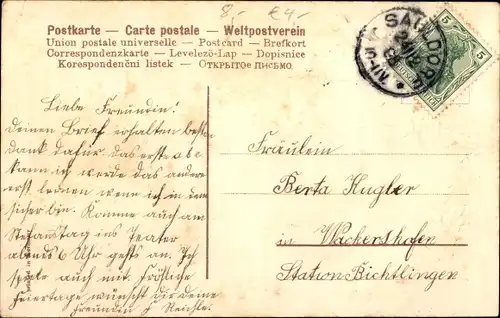 8,- € 4,-
Postkarte — Carte postale — Weltpostverein
Union postale universelle — Postcard — Brefkort
Correspondenzkarte — Levelező-Lap — Dopisnice
Korespondenční listek — ОТКРЫТОЕ ПИСЬМО.
SAULDORF
5 5
Liebe Freundin!
deinen Brief erhalten besten
dank dafür das erste abe
kann ich werde das andere
erst lernen wenn ich in dem
sicher bin. Komme auch am
Stefanstag ins Teater
abends 6 Uhr gehts an. Ich
spiele auch mit. Fröhliche
Feiertage wünscht dir deine
Freundin J Reichle.
Fräulein
Berta Hugler
in Wackershofen
Station Bichtlingen